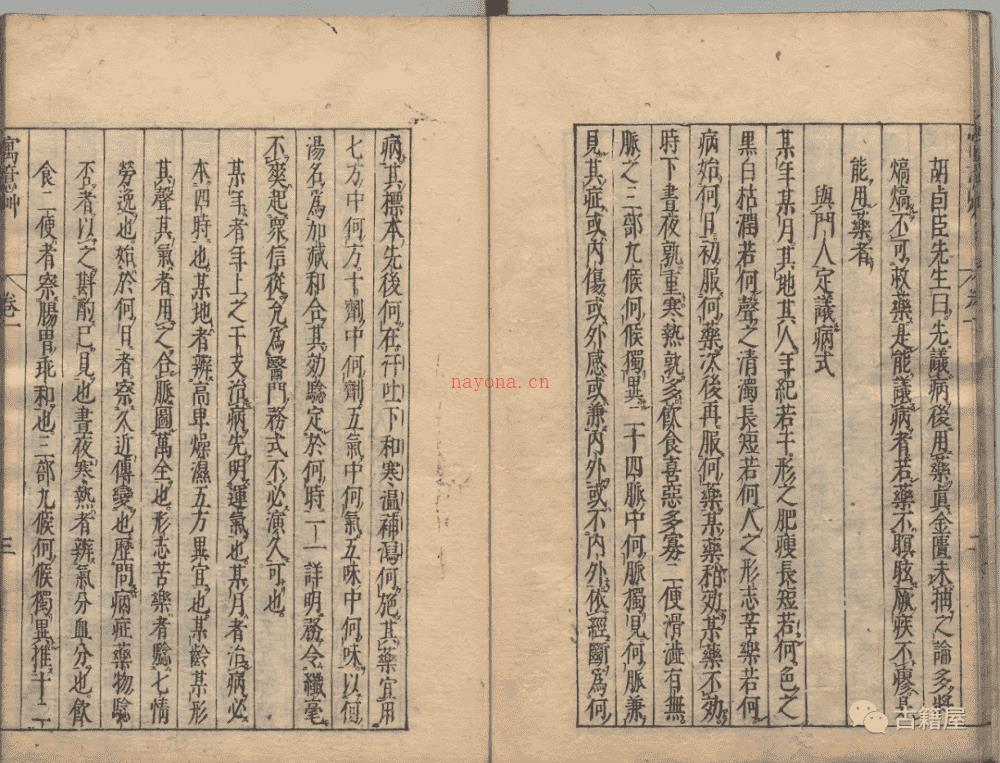 胡卣臣先生曰先議病後用藥眞金匱未抽之論多將
熇熇不可救藥是能議病者若藥不瞑眩厥疾不瘳是
能用藥者
與門人定議病式
某年某月某地某人年紀若干形之肥瘦長短若何色之
黑白枯潤若何聲之清濁長短若何人之形志苦樂若何
病始何日初服何藥次後再服何藥某藥稍効某藥不効
時下晝夜孰重寒熱孰多飲食喜惡多寡二便滑澁有無
脈之三部九候何候獨異二十四脈中何脈獨見何脈兼
見其症或內傷或外感或兼內外或不內外依經斷爲何
病其標本先後何在汗吐下和寒溫補瀉何施其藥宜用
七方中何方十劑中何劑五氣中何氣五味中何味以何
湯名爲加減和合其効驗定於何時一一詳明務令纖毫
不爽起衆信從允爲醫門務式不必演久可也
某年者年上之干支治病先明運氣也某月者治病必
本四時也某地者辨高卑燥濕五方異宜也某齡某形
某聲某氣者用之合脈圖萬全也形志苦樂者驗七情
勞逸也始於何日者察久近傳變也歷問病症藥物驗
否者以之斟酌已見也晝夜寒熱者辨氣分血分也飲
食二便者察腸胃乖和也三部九候何候獨異推十二
寓意艸
卷一
三
nayona.cn
古籍屋